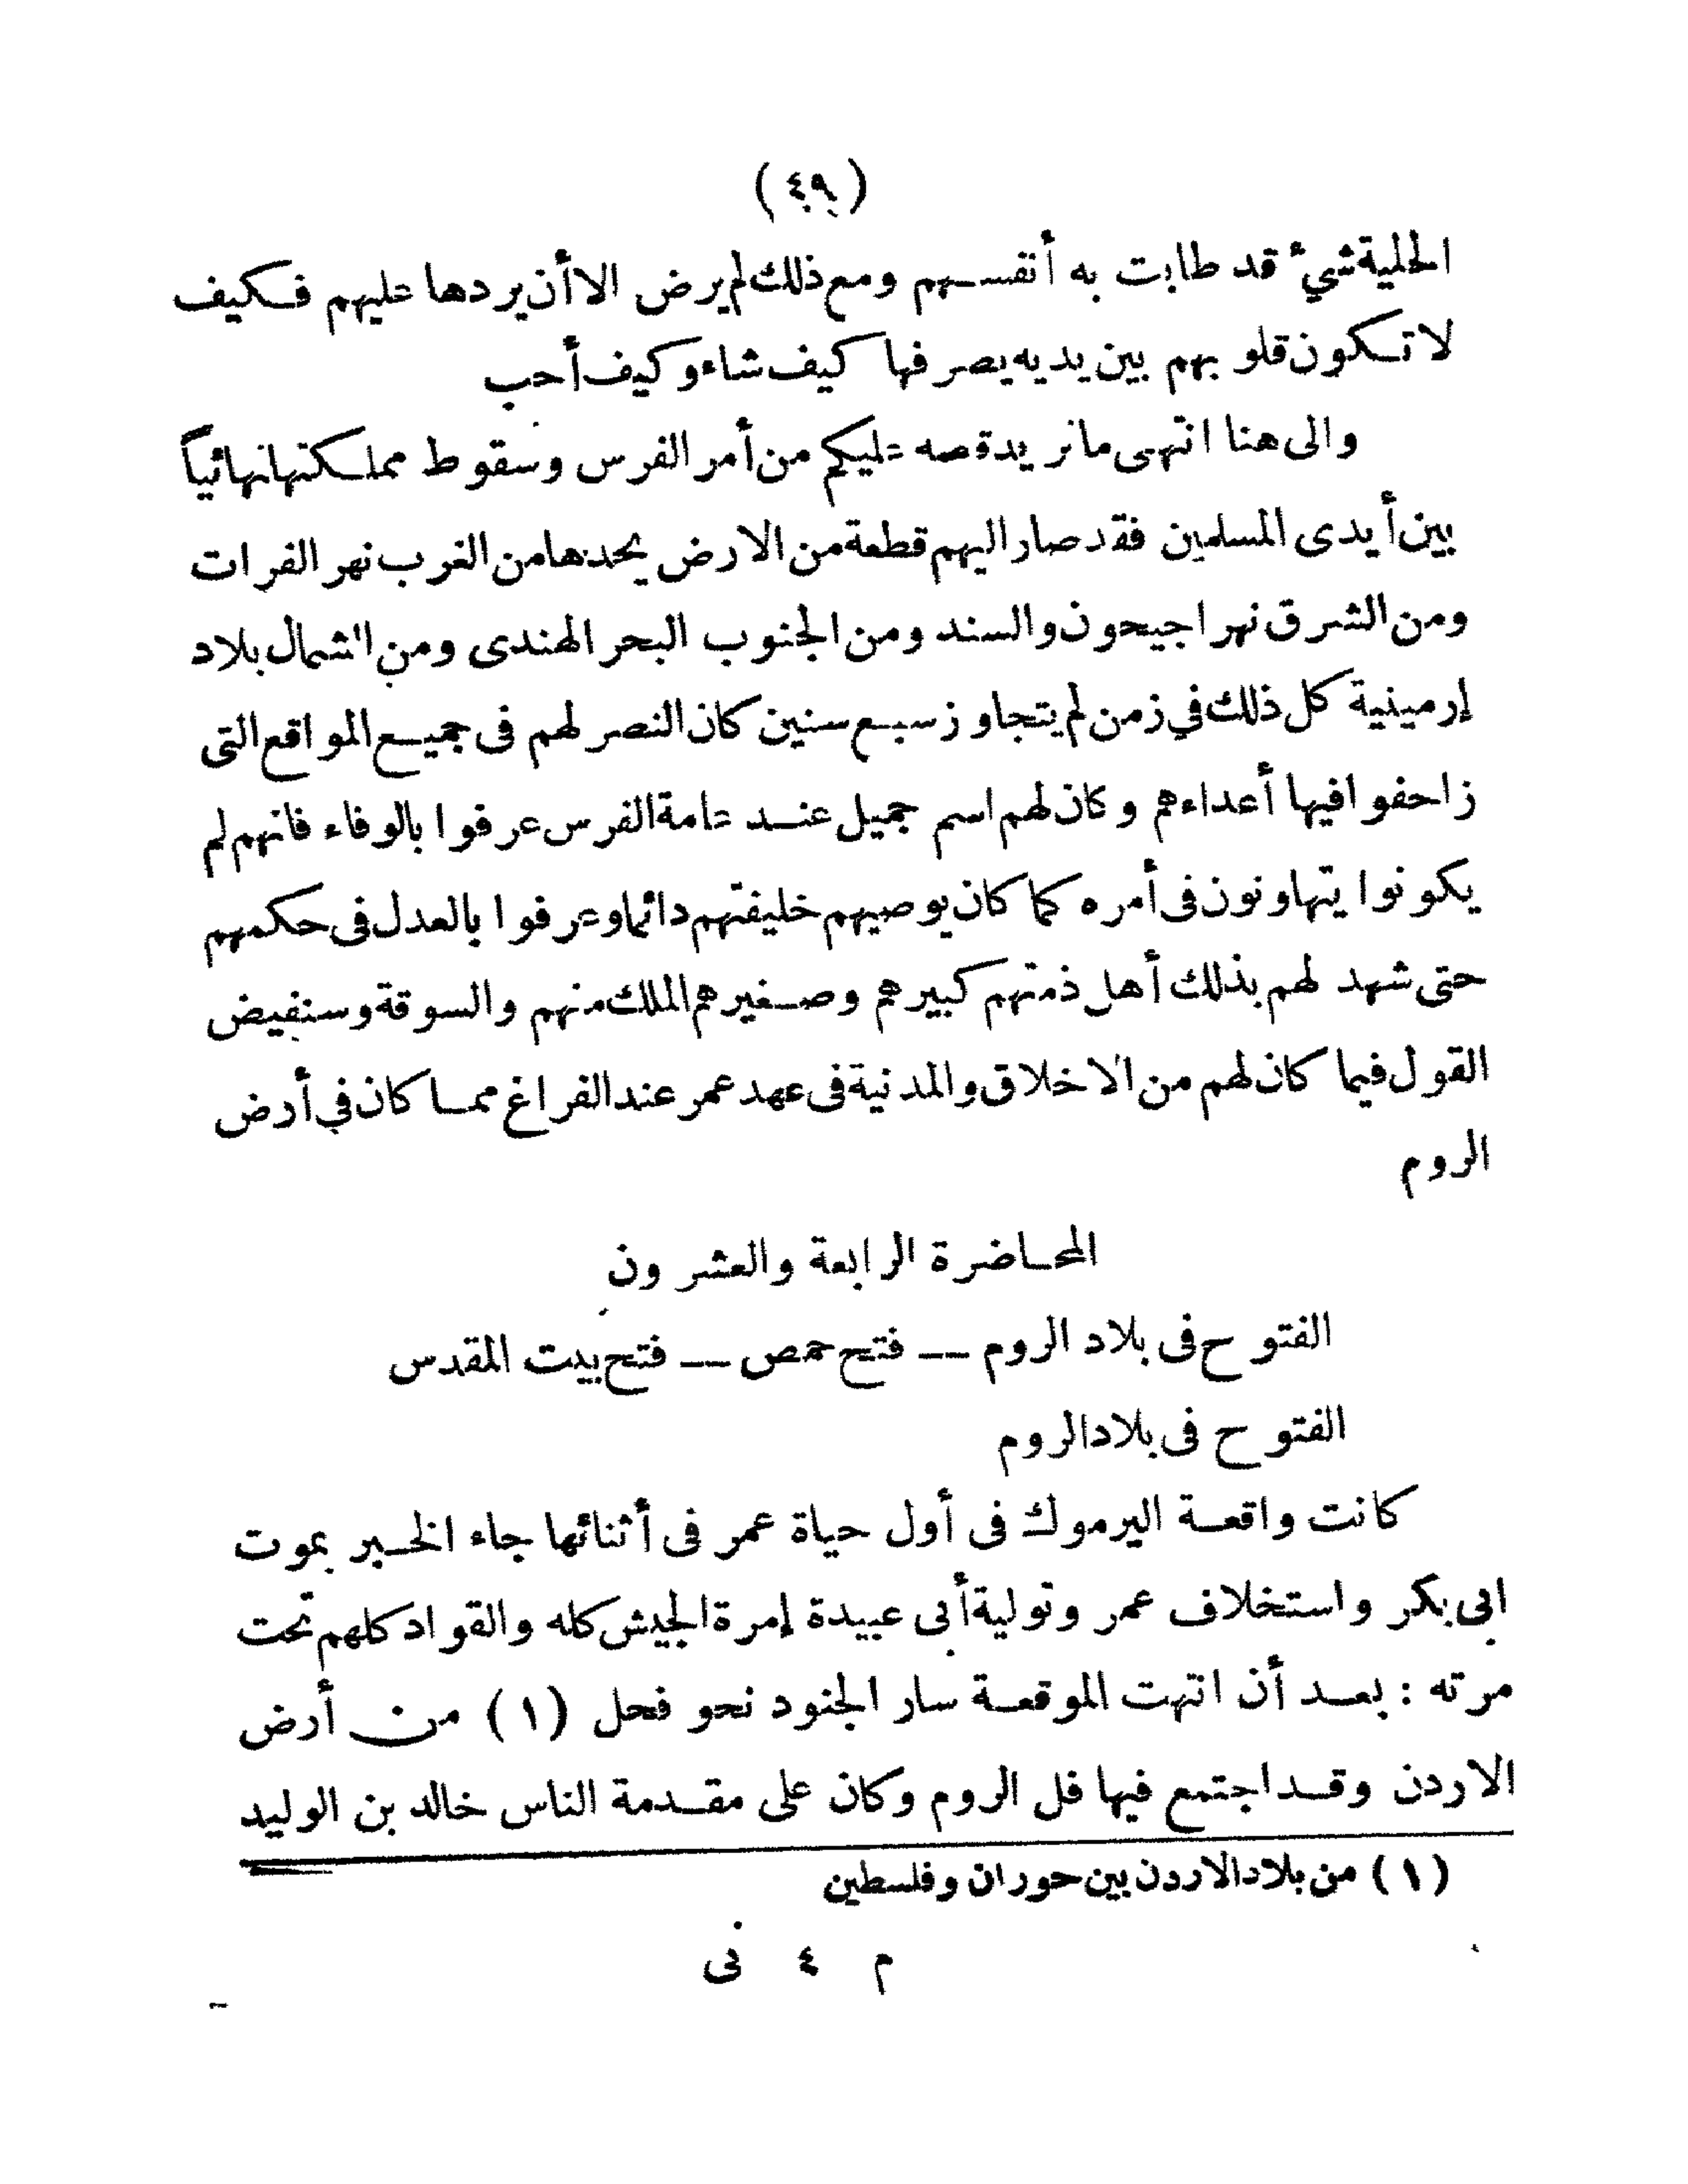 (٤٩)
الحلية شيء قد طابت به أنفسهم ومع ذلك لم يرض الا أن يردها عليهم فكيف
لا تكون قلوبهم بين يديه يصرفها كيف شاء وكيف أحب
والى هنا انتهى ما نريد قصه عليكم من أمر الفرس وسقوط مملكتها نهائياً
بين أيدى المسلمين فقد صار اليهم قطعة من الارض يحدها من الغرب نهر الفرات
ومن الشرق نهرا جيحون والسند ومن الجنوب البحر الهندى ومن الشمال بلاد
إرمينية كل ذلك في زمن لم يتجاوز سبع سنين كان النصر لهم فى جميع المواقع التى
زاحفوا فيها أعداءهم وكان لهم اسم جميل عند عامة الفرس عرفوا بالوفاء فانهم لم
يكونوا يتهاونون فى أمره كما كان يوصيهم خليفتهم دائما وعرفوا بالعدل فى حكمهم
حتى شهد لهم بذلك أهل ذمتهم كبيرهم وصغيرهم الملك منهم والسوقة وسنفيض
القول فيما كان لهم من الاخلاق والمدنية فى عهد عمر عند الفراغ مما كان في أرض
الروم
المحاضرة الرابعة والعشرون
الفتوح فى بلاد الروم — فتح حمص — فتح بيت المقدس
الفتوح فى بلاد الروم
كانت واقعة اليرموك فى أول حياة عمر فى أثنائها جاء الخبر بموت
ابى بكر واستخلاف عمر وتولية أبى عبيدة إمرة الجيش كله والقواد كلهم تحت
مرته : بعد أن انتهت الموقعة سار الجنود نحو فحل (١) من أرض
الاردن وقد اجتمع فيها فل الروم وكان على مقدمة الناس خالد بن الوليد
(١) من بلاد الاردن بين حوران وفلسطين
م ٤ نى